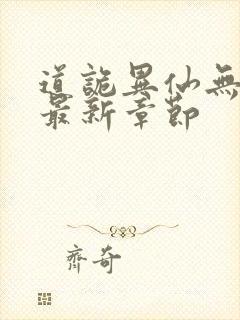 道詭異仙無
最新章節
齊奇